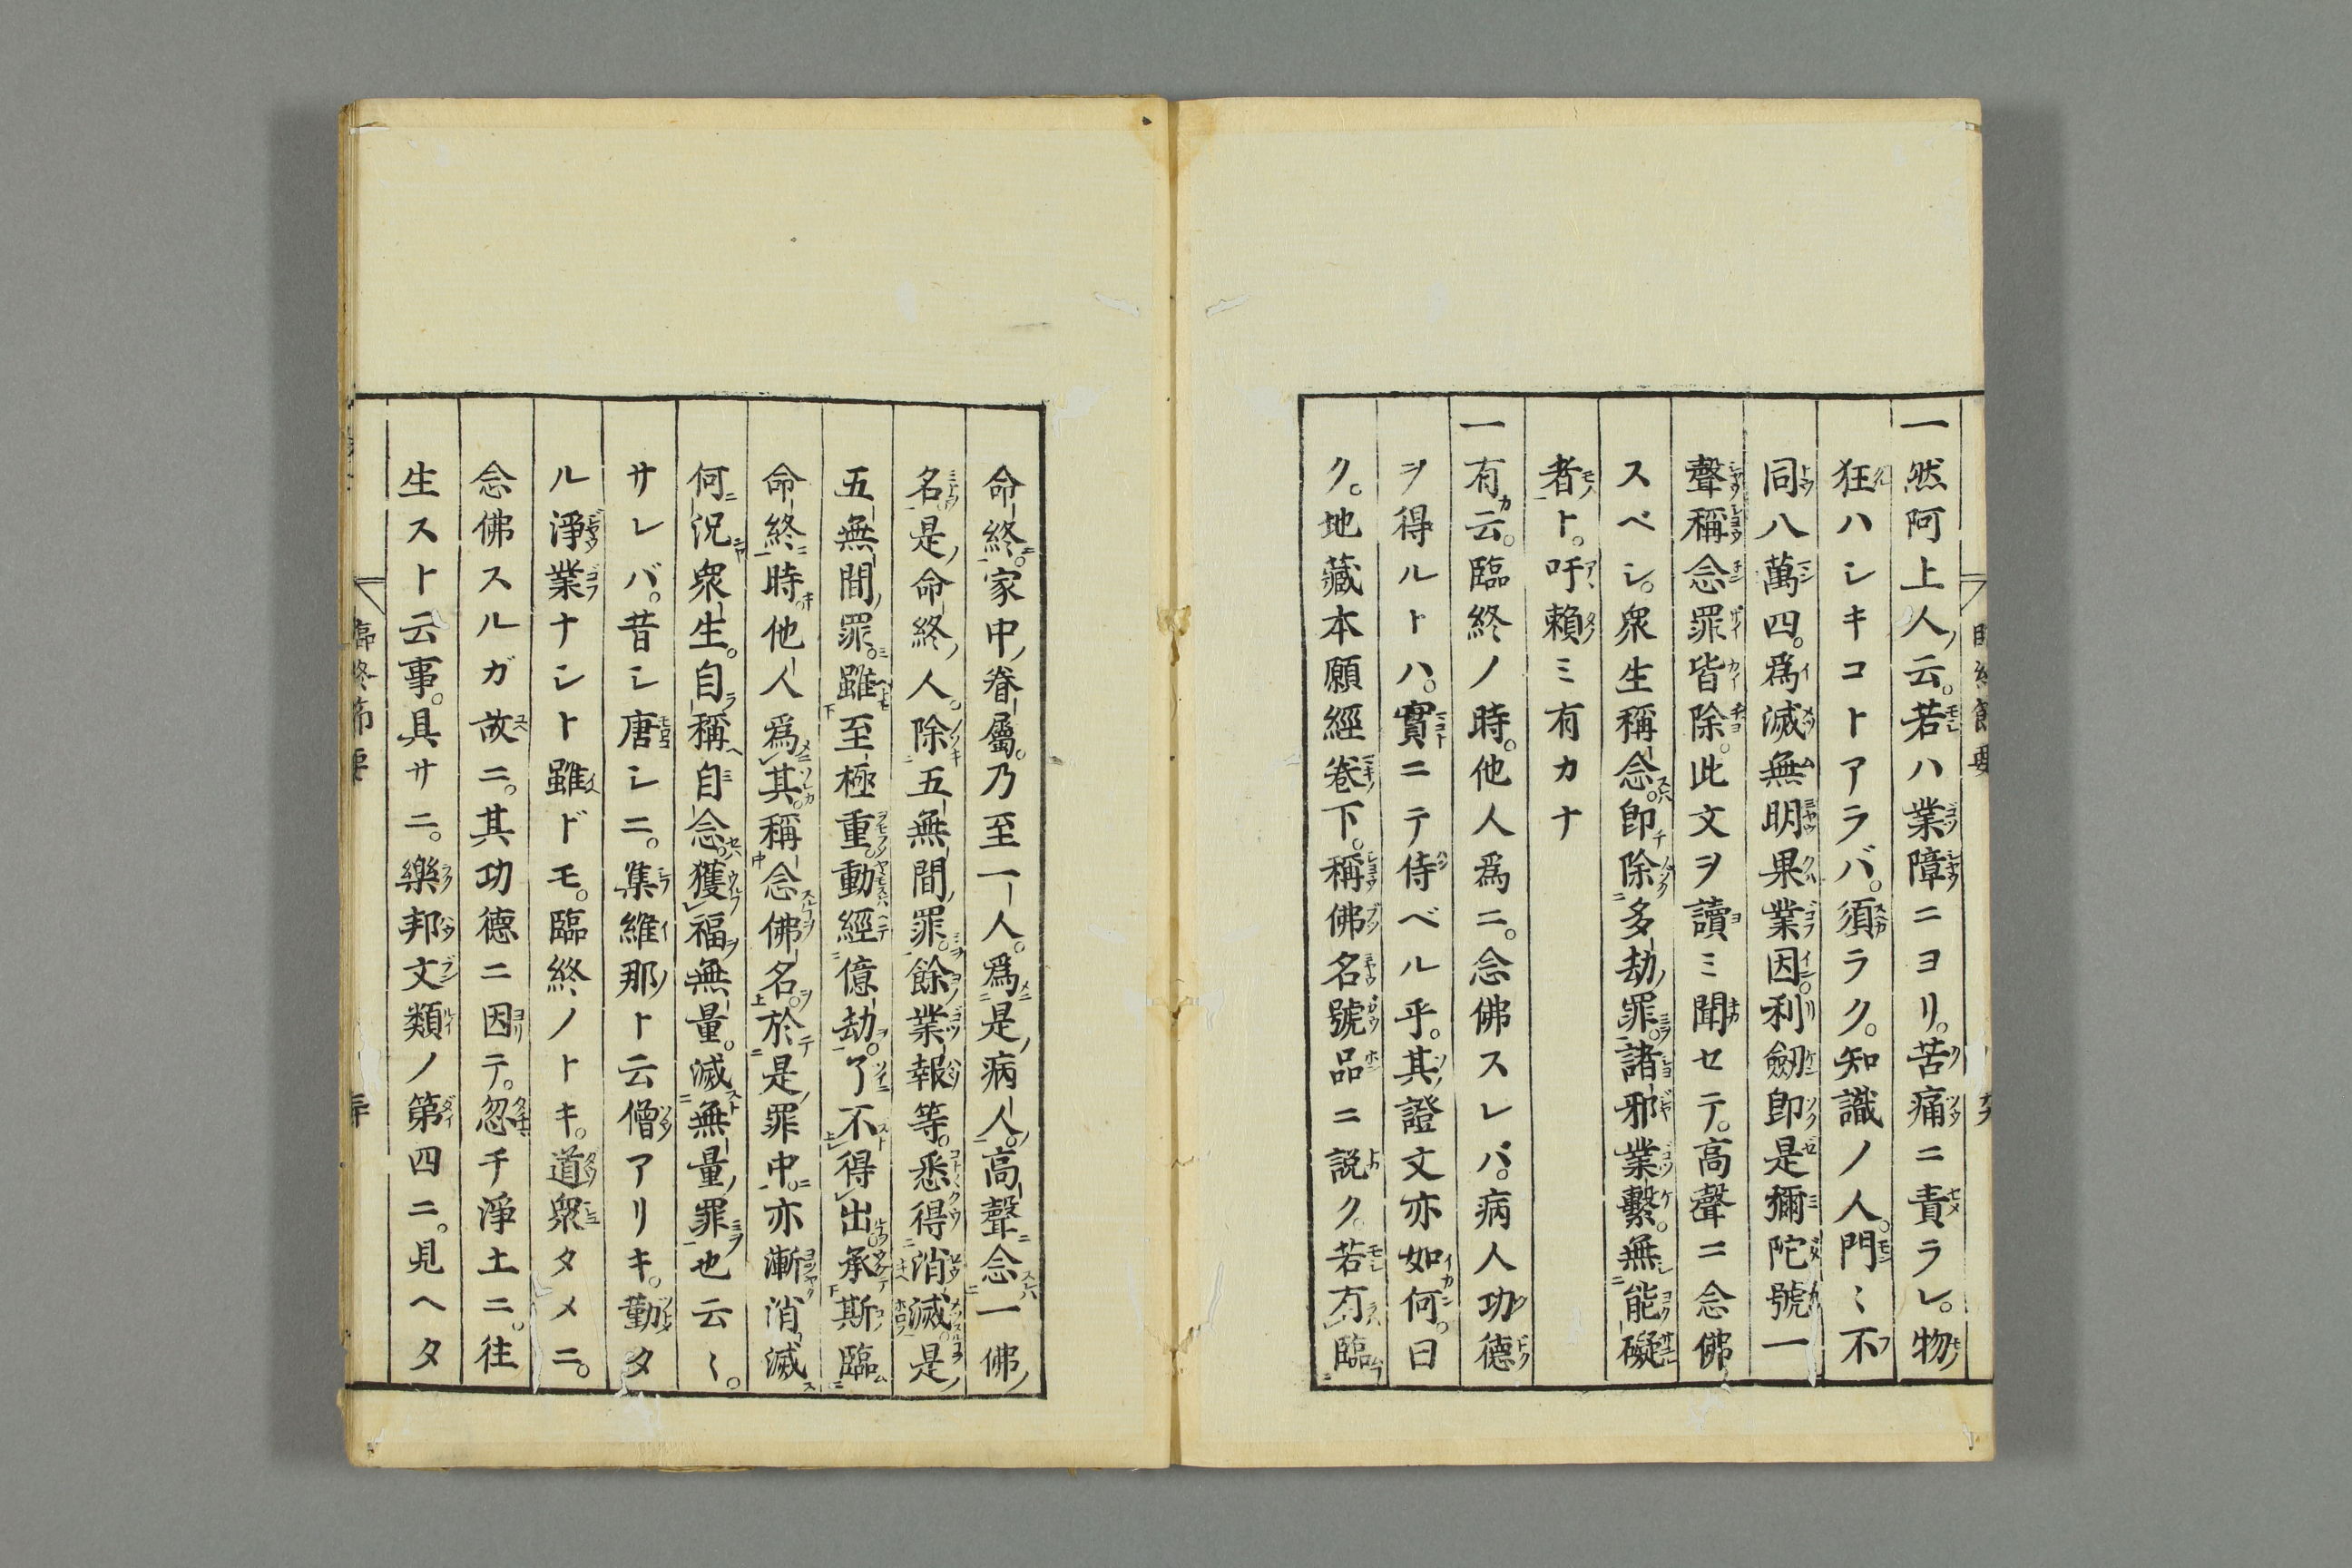 一然阿上人ノ云。若ハ業障ニヨリ。苦痛ニ責ラレ。物
狂ハシキコトアラバ。須ラク。知識ノ人。門〻不
同八萬四。爲滅無明果業因。利劔即是彌陀號一
聲稱念罪皆除。此文ヲ讀ミ聞セテ。高聲ニ念佛
スベシ。衆生稱念。即除多劫罪。諸邪業繫。無能礙
者ト。吁賴ミ有カナ
一有云。臨終ノ時。他人爲ニ。念佛スレバ。病人功德
ヲ得ルトハ。實ニテ侍ベル乎。其證文亦如何。曰
ク。地藏本願經卷下。稱佛名號品ニ説ク。若有臨
命終。家中眷屬。乃至一人。爲是病人。高聲念一佛
名。是命終人。除五無間罪。餘業報等。悉得消滅。是
五無間罪。雖至極重。動經億劫。了不得出。承斯臨
命終時。他人爲其。稱念佛名。於是罪中。亦漸消滅
何況衆生。自稱自念。獲福無量。滅無量罪也云〻。
サレバ。昔シ唐シニ。集維那ト云僧アリキ。勤タ
ル淨業ナシト雖ドモ。臨終ノトキ。道衆タメニ。
念佛スルガ故ニ。其功德ニ因テ。忽チ淨土ニ。往
生スト云事。具サニ。樂邦文類ノ第四ニ。見ヘタ
臨終節要